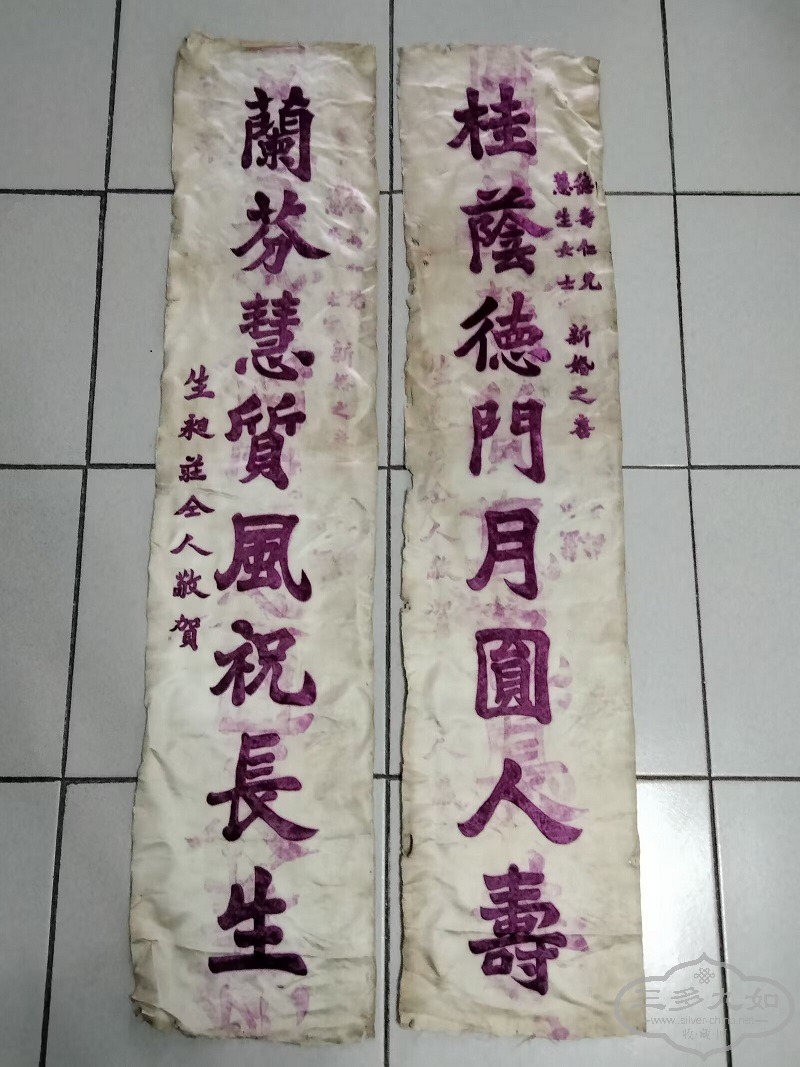 德壽仁兄
慧生女士
新婚之喜
桂蔭德門月圓人壽
蘭芬慧質風祝長生
生昶莊仝人敬賀
三多九如
www.silver-china.net